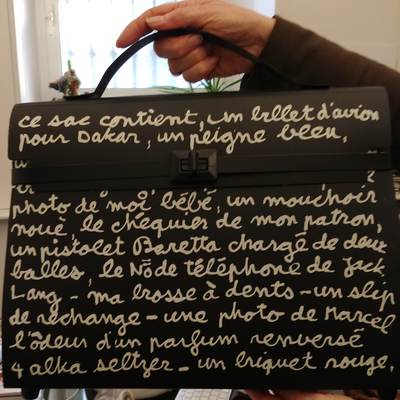 ce sac contient, un billet d'avion
pour Dakar, un peigne bleu,
photo de moi bébé, un mouchoir
noué, le chéquier de mon patron,
un pistolet Baretta chargé de deux
balles, le No de téléphone de Jack
Lang - ma brosse à dents - un slip
de rechange - une photo de Marcel
l'odeur d'un parfum renversé
4 alka seltzer - un briquet rouge,